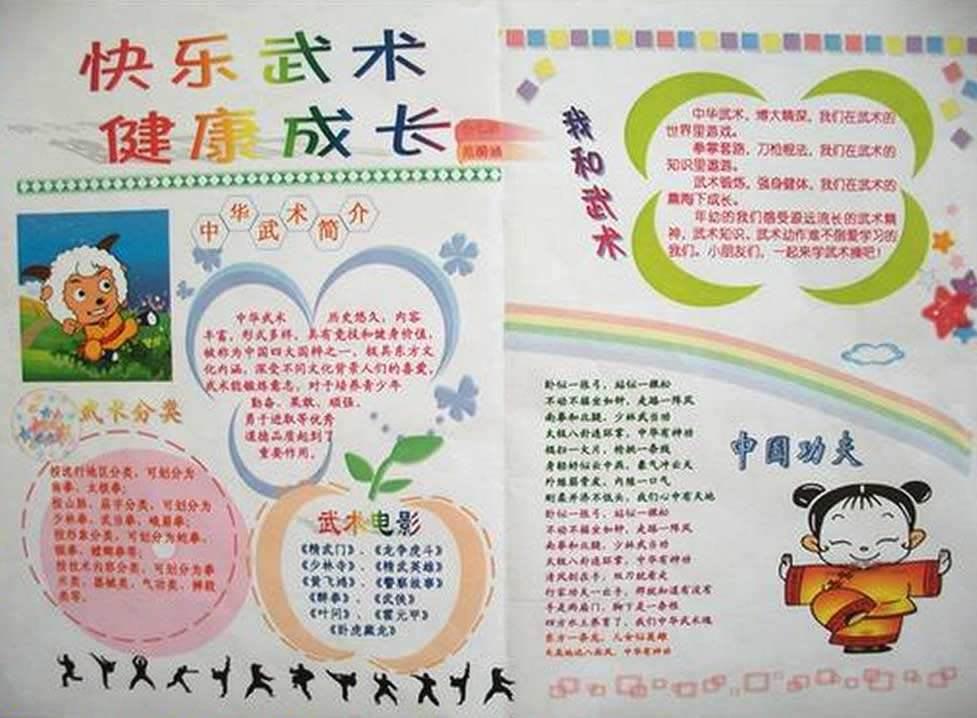 快乐武术
健康成长
中华武术简介
中华武术 历史悠久，内容
丰富，形式多样，具有竞技和健身价值，
被称为中国四大国粹之一，极具东方文
化内涵，深受不同文化背景人们的喜爱，
武术能锻炼意志，对于培养青少年
勤奋、果敢、顽强、
勇于进取等优秀
道德品质起到了
重要作用。
武术分类
按流行地区分类，可划分为
南拳、北拳等；
按山脉、庙宇分类，可划分为
少林拳、武当拳、峨眉拳；
按形象分类，可划分为蛇拳、
猴拳、螳螂拳等；
按技术内容分类，可划分为拳
术类、器械类、气功类、搏毅
类等。
武术电影
《精武门》、《龙争虎斗》
《少林寺》、《精武英雄》
《黄飞鸿》、《警察故事》
《醉拳》、《武侠》
《叶问》、《霍元甲》
《卧虎藏龙》
我和武术
中华武术，博大精深，我们在武术的
世界里游戏。
拳掌套路，刀枪棍法，我们在武术的
知识里遨游。
武术锻炼，强身健体，我们在武术的
熏陶下成长。
年幼的我们感受源远流长的武术精
神，武术知识，武术动作难不倒爱学习的
我们。小朋友们，一起来学武术操吧！
中国功夫
卧似一张弓，站似一棵松
不动不摇坐如钟，走路一阵风
南拳和北腿，少林武当功
太极八卦连环掌，中华有神功
棍扫一大片，枪挑一条线
身轻好似云中燕，豪气冲云天
外练筋骨皮，内练一口气
刚柔并济不低头，我们心中有天地
卧似一张弓，站似一棵松
不动不摇坐如钟，走路一阵风
南拳和北腿，少林武当功
太极八卦连环掌，中华有神功
清风剑在手，双刀就看走
行家功夫一出手，那就知道有没有
手是两扇门，脚下是一条根
四方水土养育了，我们中华武术魂
东方一条龙，儿女似英雄
天高地远八面风，中华有神功